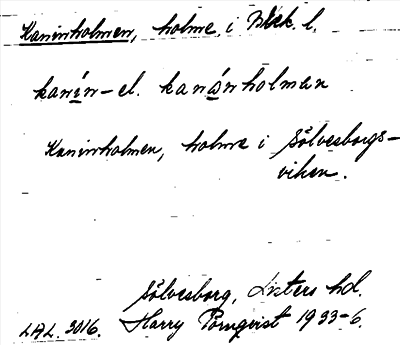 Kaninholmen, holme i Blek. l.
kanín- el. kanánholman
Kaninholmen, holme i Sölvesborgs-
viken.
Sölvesborg, Listers hd.
LAL. 3016. Harry Törnqvist 1933-6.